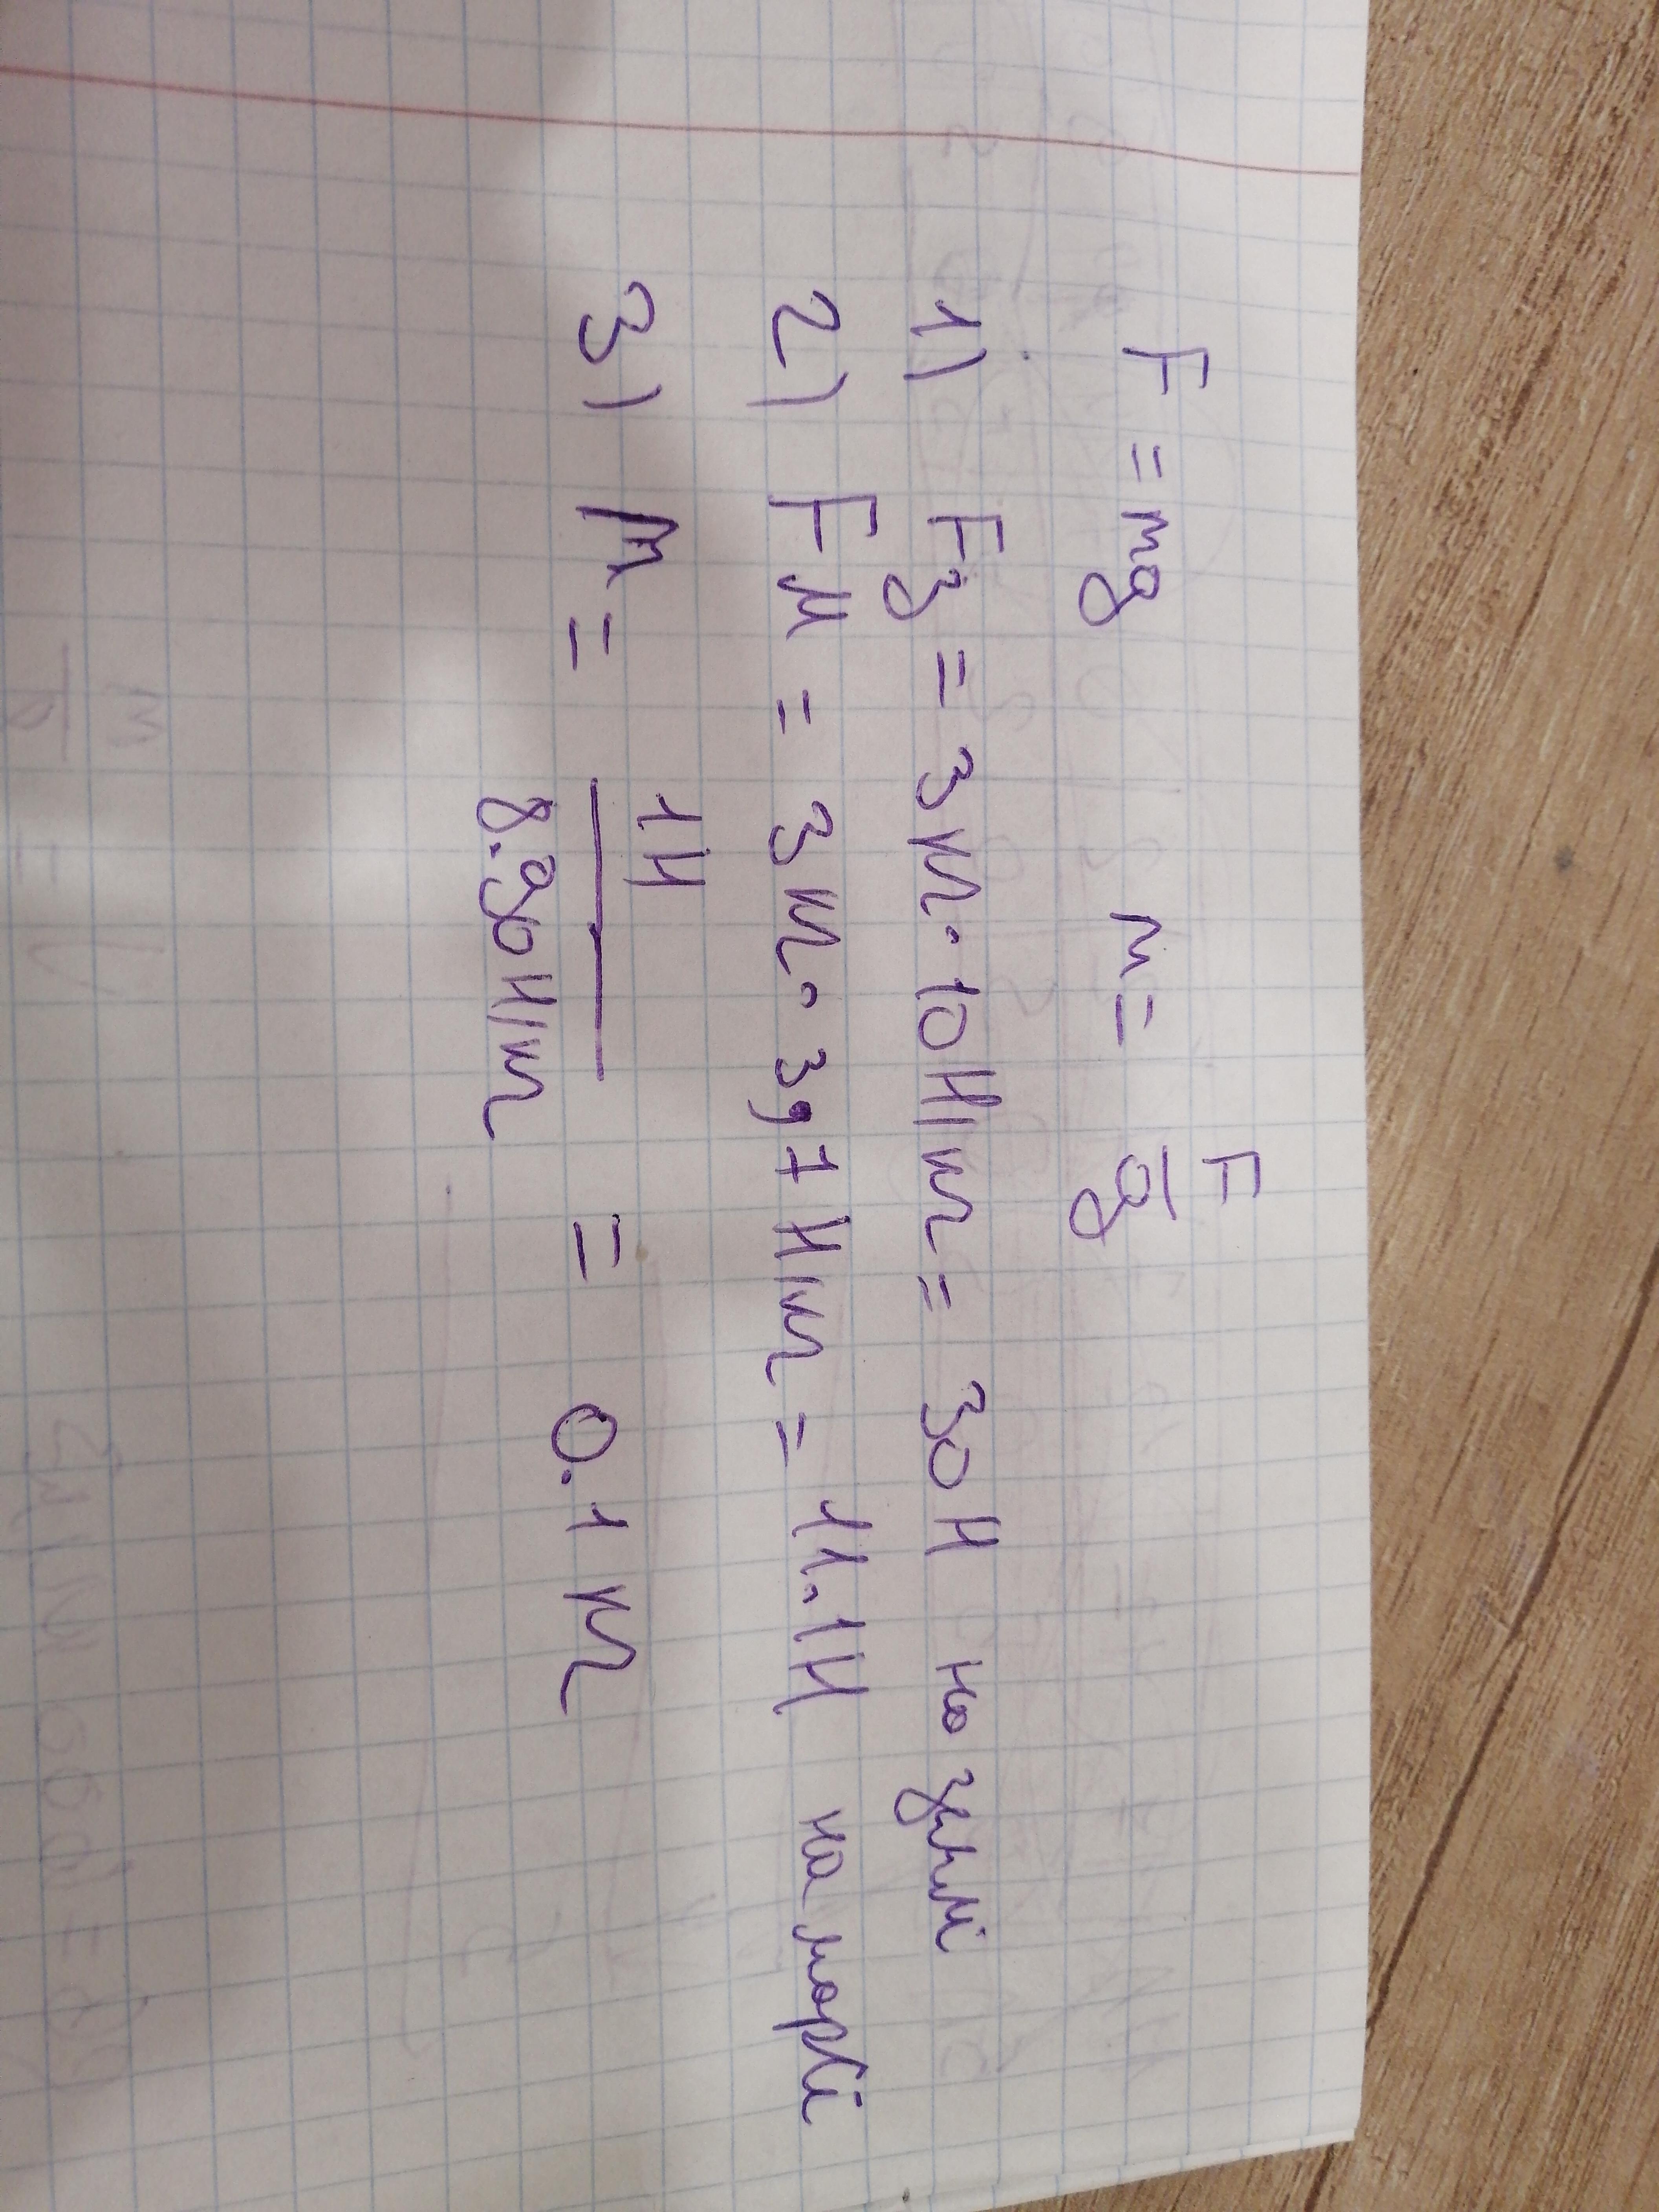 F = mg m = F/g
1) Fз = 3кг · 10Н/кг = 30Н на землі
2) Fм = 3кг · 3,7Н/кг = 11.1Н на марсі
3) m = 1Н / 8.9
Н/кг = 0.1 кг